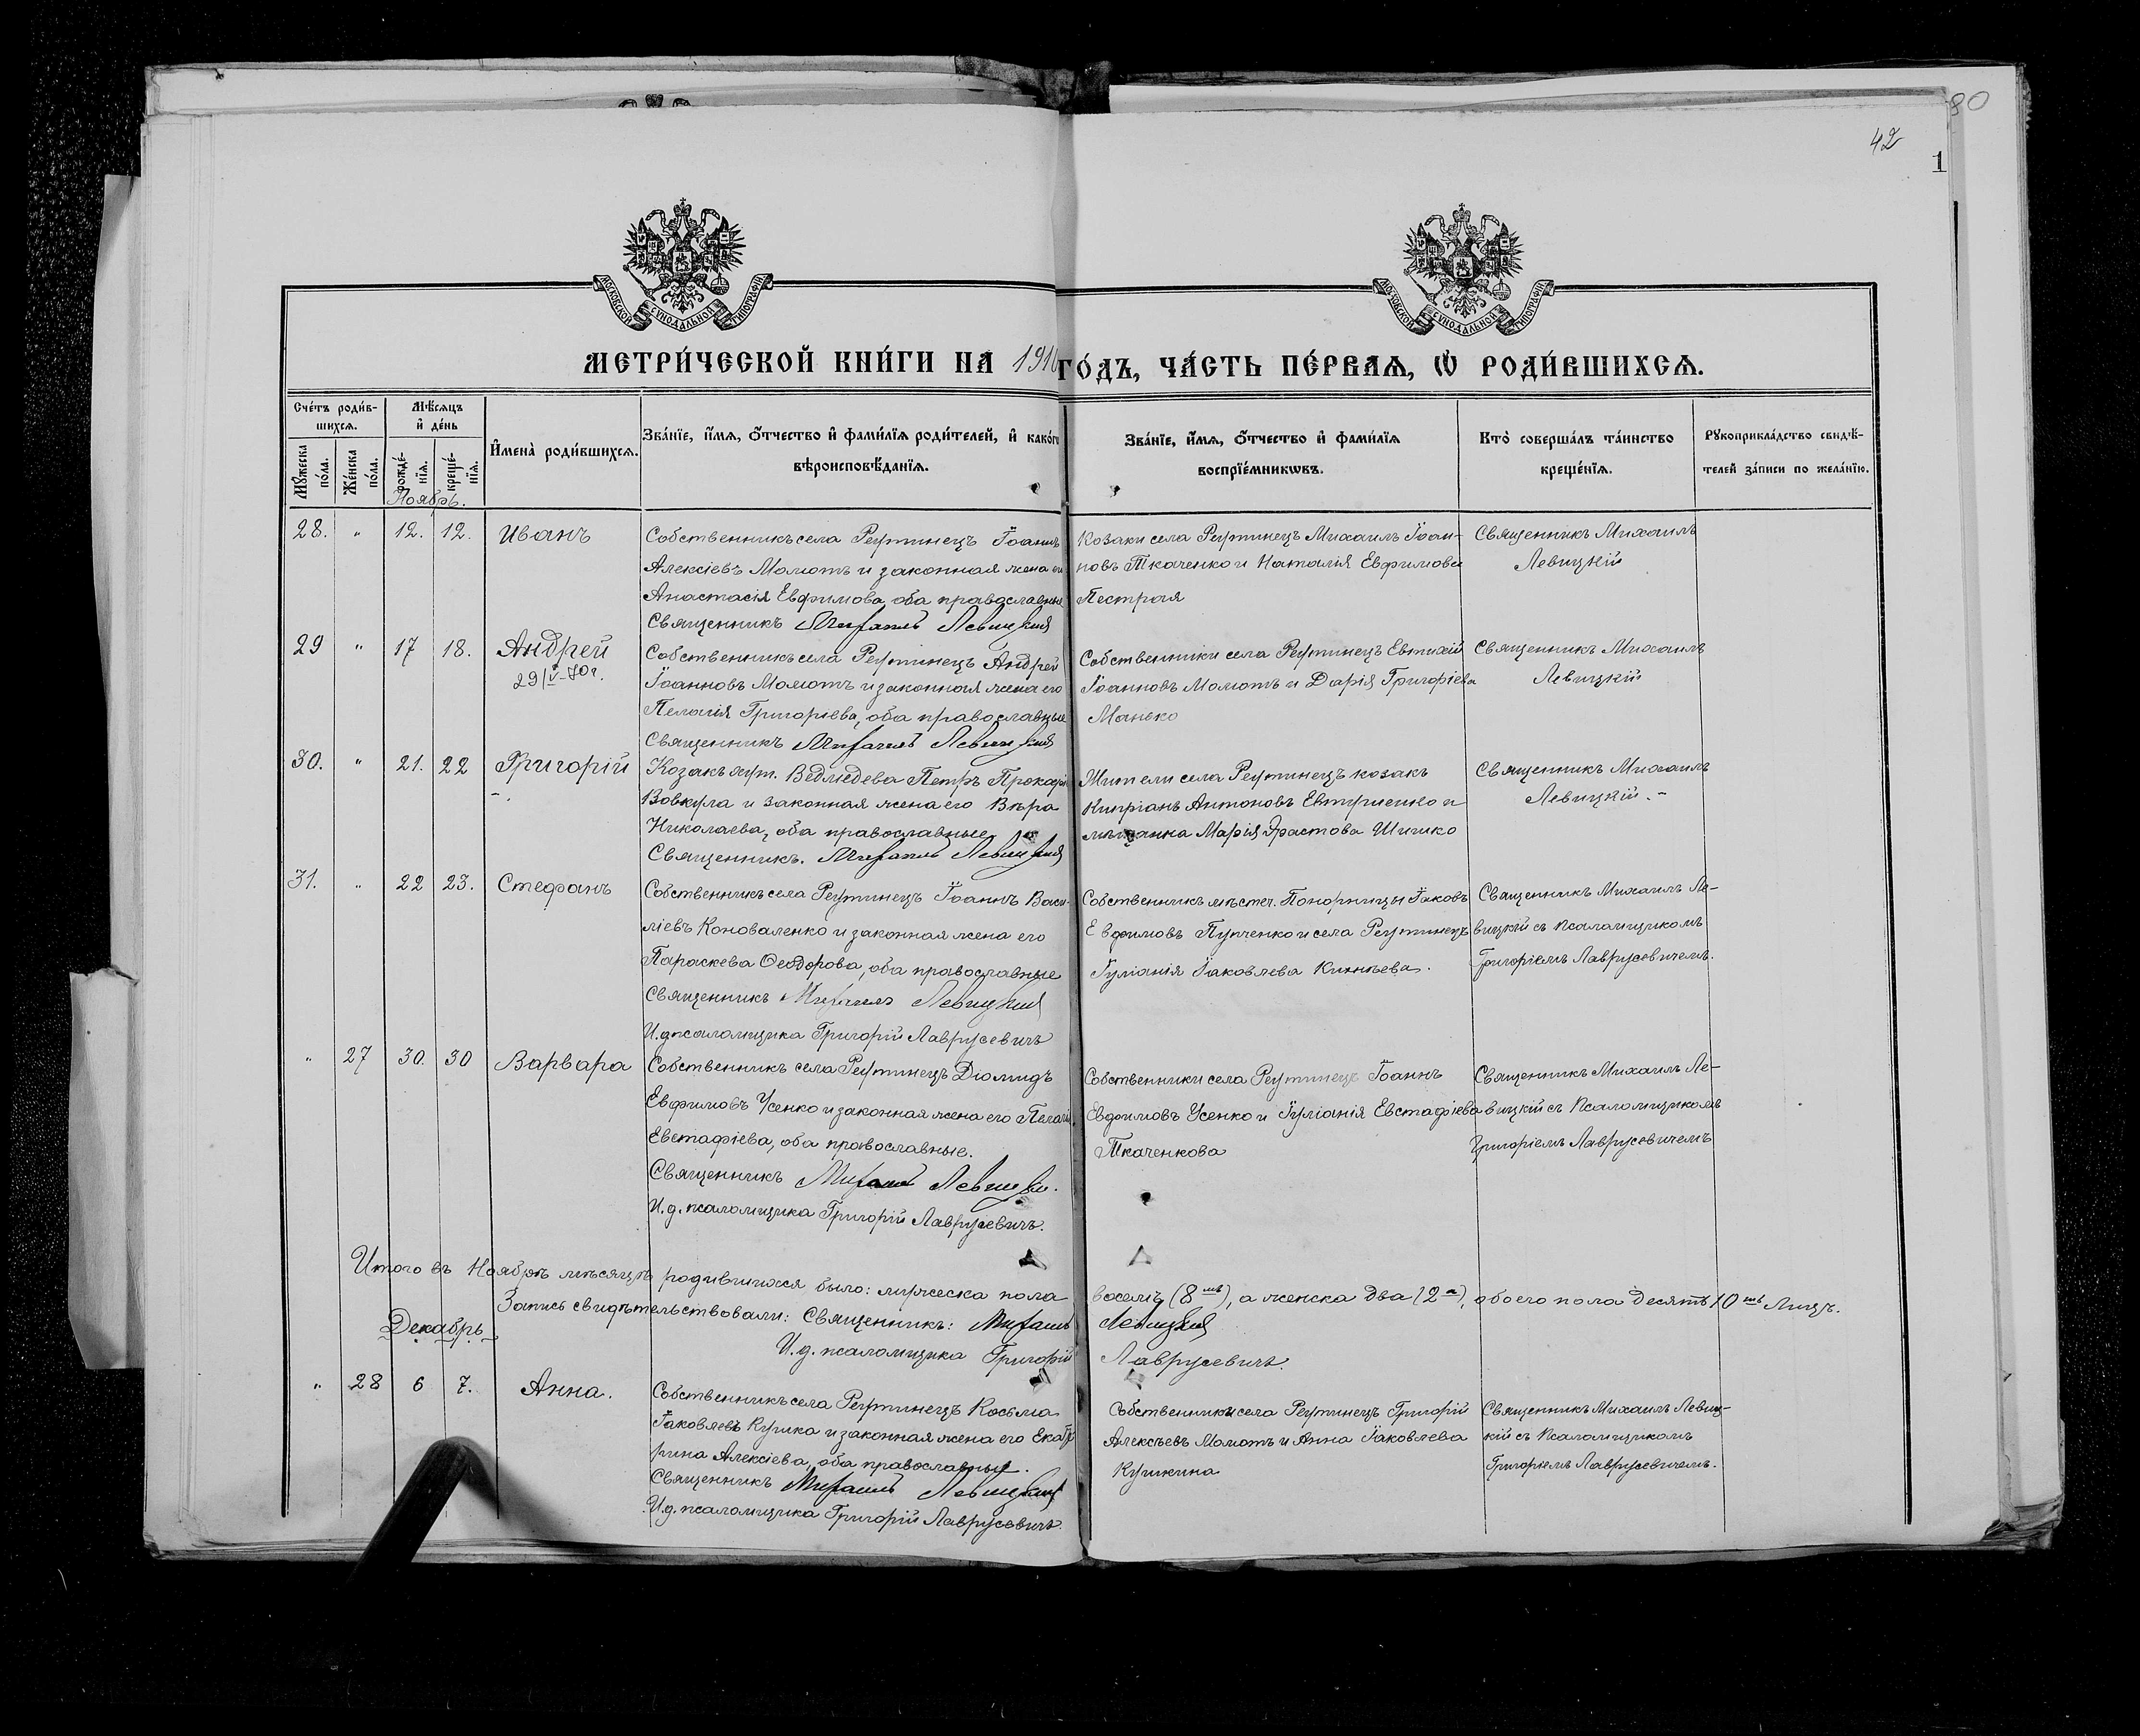 80
42
1
МОСКОВСКОЙ СѴНОДАЛЬНОЙ ТИПОГРАФІИ
МОСКОВСКОЙ СѴНОДАЛЬНОЙ ТИПОГРАФІИ
МЕТРИ́ЧЕСКОЙ КНИ́ГИ НА 1910 ГО́ДЪ, ЧА́СТЬ ПЕ́РВАѦ, Ѽ РОДИ́ВШИХСѦ.
Сче́тъ роди́в-
шихсѧ.
Мꙋ́жеска по́ла.
Же́нска по́ла.
Мѣ́сѧцъ и҆ де́нь
рожде́-
нїѧ.
креще́-
нїѧ.
И҆мена̀ роди́вшихсѧ.
Зва́нїе, и҆́мѧ, ѻ҆́тчество и҆ фами́лїѧ роди́телей, и҆ како́гѡ
вѣроисповѣ́данїѧ.
Зва́нїе, и҆́мѧ, ѻ҆́тчество и҆ фами́лїѧ
воспрїе́мникѡвъ.
Кто̀ соверша́лъ та́инство
креще́нїѧ.
Рꙋкоприкла́дство свидѣ́-
телей за́писи по жела́нїю.
Ноябрь.
28. " 12. 12. Иванъ
Собственникъ села Реутинецъ Іоаннъ
Алексіевъ Мамотъ и законная жена его
Анастасія Евфимова, оба православные
Священникъ Михаилъ Левицкій
Козаки села Реутинецъ Михаилъ Іоан-
новъ Ткаченко и Наталія Евфимова
Пестрая
Священникъ Михаилъ
Левицкій
29 " 17 18. Андрей
29/V-70г.
Собственникъ села Реутинецъ Андрей
Іоанновъ Мамотъ и законная жена его
Пелагія Григоріева, оба православные
Священникъ Михаилъ Левицкій
Собственники села Реутинецъ Евтихій
Іоанновъ Мамотъ и Дарія Григоріева
Манько
Священникъ Михаилъ
Левицкій
30. " 21. 22 Григорій
Козакъ хут. Ведмедева Петръ
Вовкула и законная жена его Вѣра
Николаева, оба православные
Священникъ. Михаилъ Левицкій
Жители села Реутинецъ козакъ
Кипріанъ Антоновъ Евтушенко и
мѣщанка Марія Эрастова Шишко
Священникъ Михаилъ
Левицкій.-
31. " 22 23. Стефанъ
Собственникъ села Реутинецъ Іоаннъ Васи-
ліевъ Коноваленко и законная жена его
Параскева Ѳеодорова, оба православные
Священникъ Михаилъ Левицкій
И.д. псаломщика Григорій Лаврусевичъ
Собственникъ мѣстеч. Понорницы Іаковъ
Евфимовъ Пупченко и села Реутинецъ
Іуліанія Іаковлева
Священникъ Михаилъ Ле-
вицкій съ псаломщикомъ
Григоріемъ Лаврусевичемъ.
" 27 30. 30 Варвара
Собственникъ села Реутинецъ Діомидъ
Евфимовъ Усенко и законная жена его Пелагія
Евстафіева, оба православные.
Священникъ Михаилъ Левицкій.
И.д. псаломщика Григорій Лаврусевичъ.
Собственники села Реутинецъ Іоаннъ
Евфимовъ Усенко и Іуліанія Евстафіева
Ткаченкова
Священникъ Михаилъ Ле-
вицкій съ псаломщикомъ
Григоріемъ Лаврусевичемъ
Итого въ Ноябрѣ мѣсяцѣ родившихся было: мужеска пола восемь (8мь), а женска два (2а), обоего пола десять 10ть лицъ.
Запись свидѣтельствовали: Священникъ: Михаилъ Левицкій
И.д. псаломщика Григорій Лаврусевичъ.
Декабрь
" 28 6 7. Анна.
Собственникъ села Реутинецъ Косьма
Іаковлевъ Кушка и законная жена его Екате
рина Алексіева, оба православные.
Священникъ Михаилъ Левицкій
И.д. псаломщика Григорій Лаврусевичъ.
Собственники села Реутинецъ Григорій
Алексѣевъ Мамотъ и Анна Іаковлева
Кушкина
Священникъ Михаилъ Левиц-
кій съ псаломщикомъ
Григоріемъ Лаврусевичемъ.